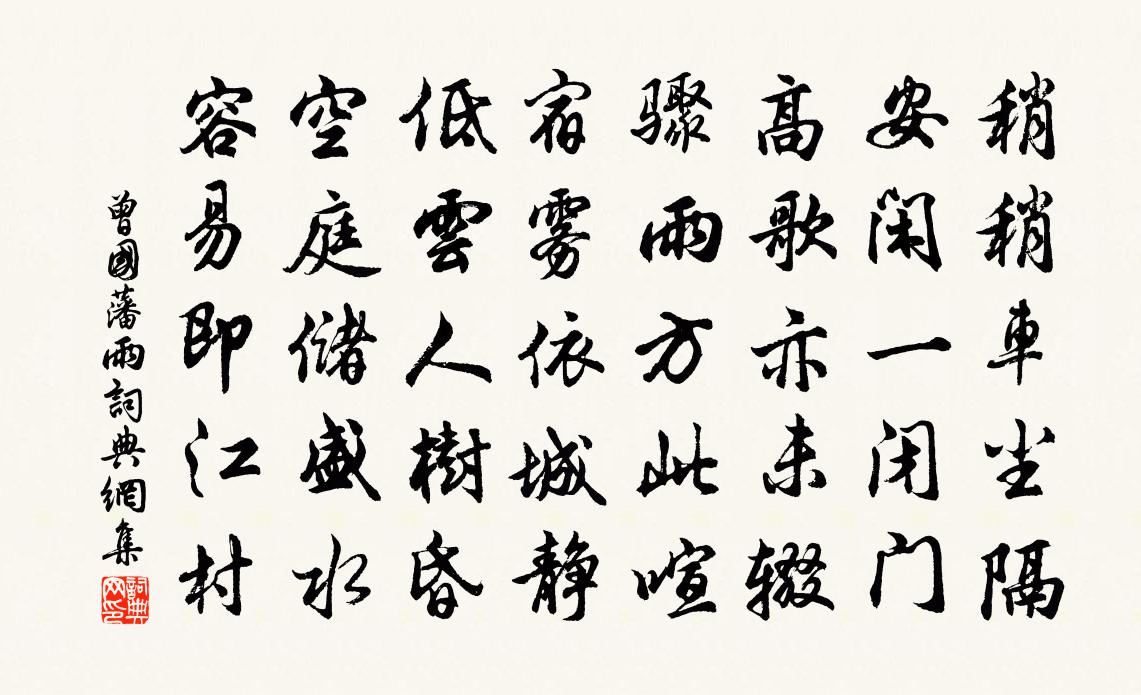 稍稍車尘隔
安闲一闭门
高歌亦未辍
骤雨方此喧
宿雾依城静
低雲人樹昏
空庭儲盛水
容易即江村
曾國藩雨詞典網集
詞典網印